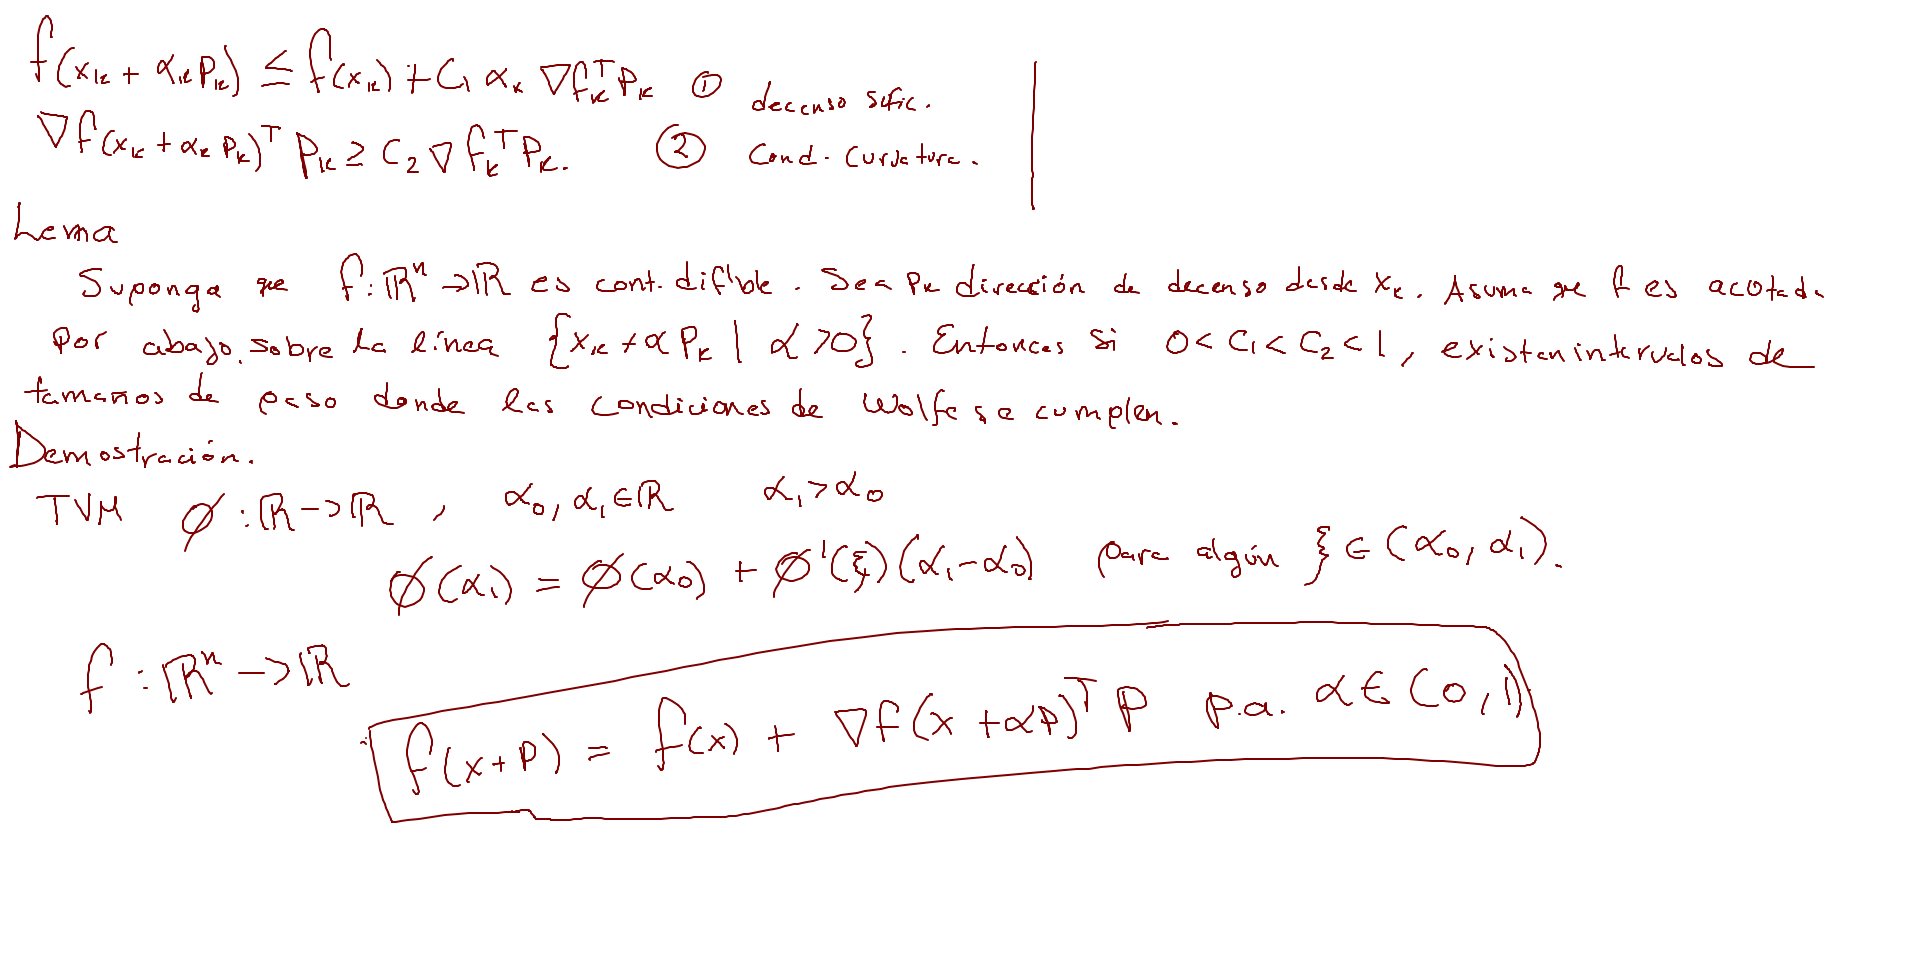 f(x_k + α_k P_k) ≤ f(x_k) + C_1 α_k ∇f_k^T P_k ① decenso sufic.
∇f(x_k + α_k P_k)^T P_k ≥ C_2 ∇f_k^T P_k. ② Cond. Curvatura.
Lema
Suponga que f: ℝ^n → ℝ es cont. difible. Sea P_k dirección de decenso desde x_k. Asuma que f es acotada
por abajo, sobre la línea {x_k + α P_k | α > 0}. Entonces si 0 < C_1 < C_2 < 1, existen intervalos de
tamaños de paso donde las condiciones de Wolfe se cumplen.
Demostración.
TVM ∅ : ℝ → ℝ , α_0, α_1 ∈ ℝ α_1 > α_0
∅(α_1) = ∅(α_0) + ∅'(ξ)(α_1 - α_0) para algún ξ ∈ (α_0, α_1).
f : ℝ^n → ℝ
f(x + P) = f(x) + ∇f(x + αP)^T P p.a. α ∈ (0, 1)